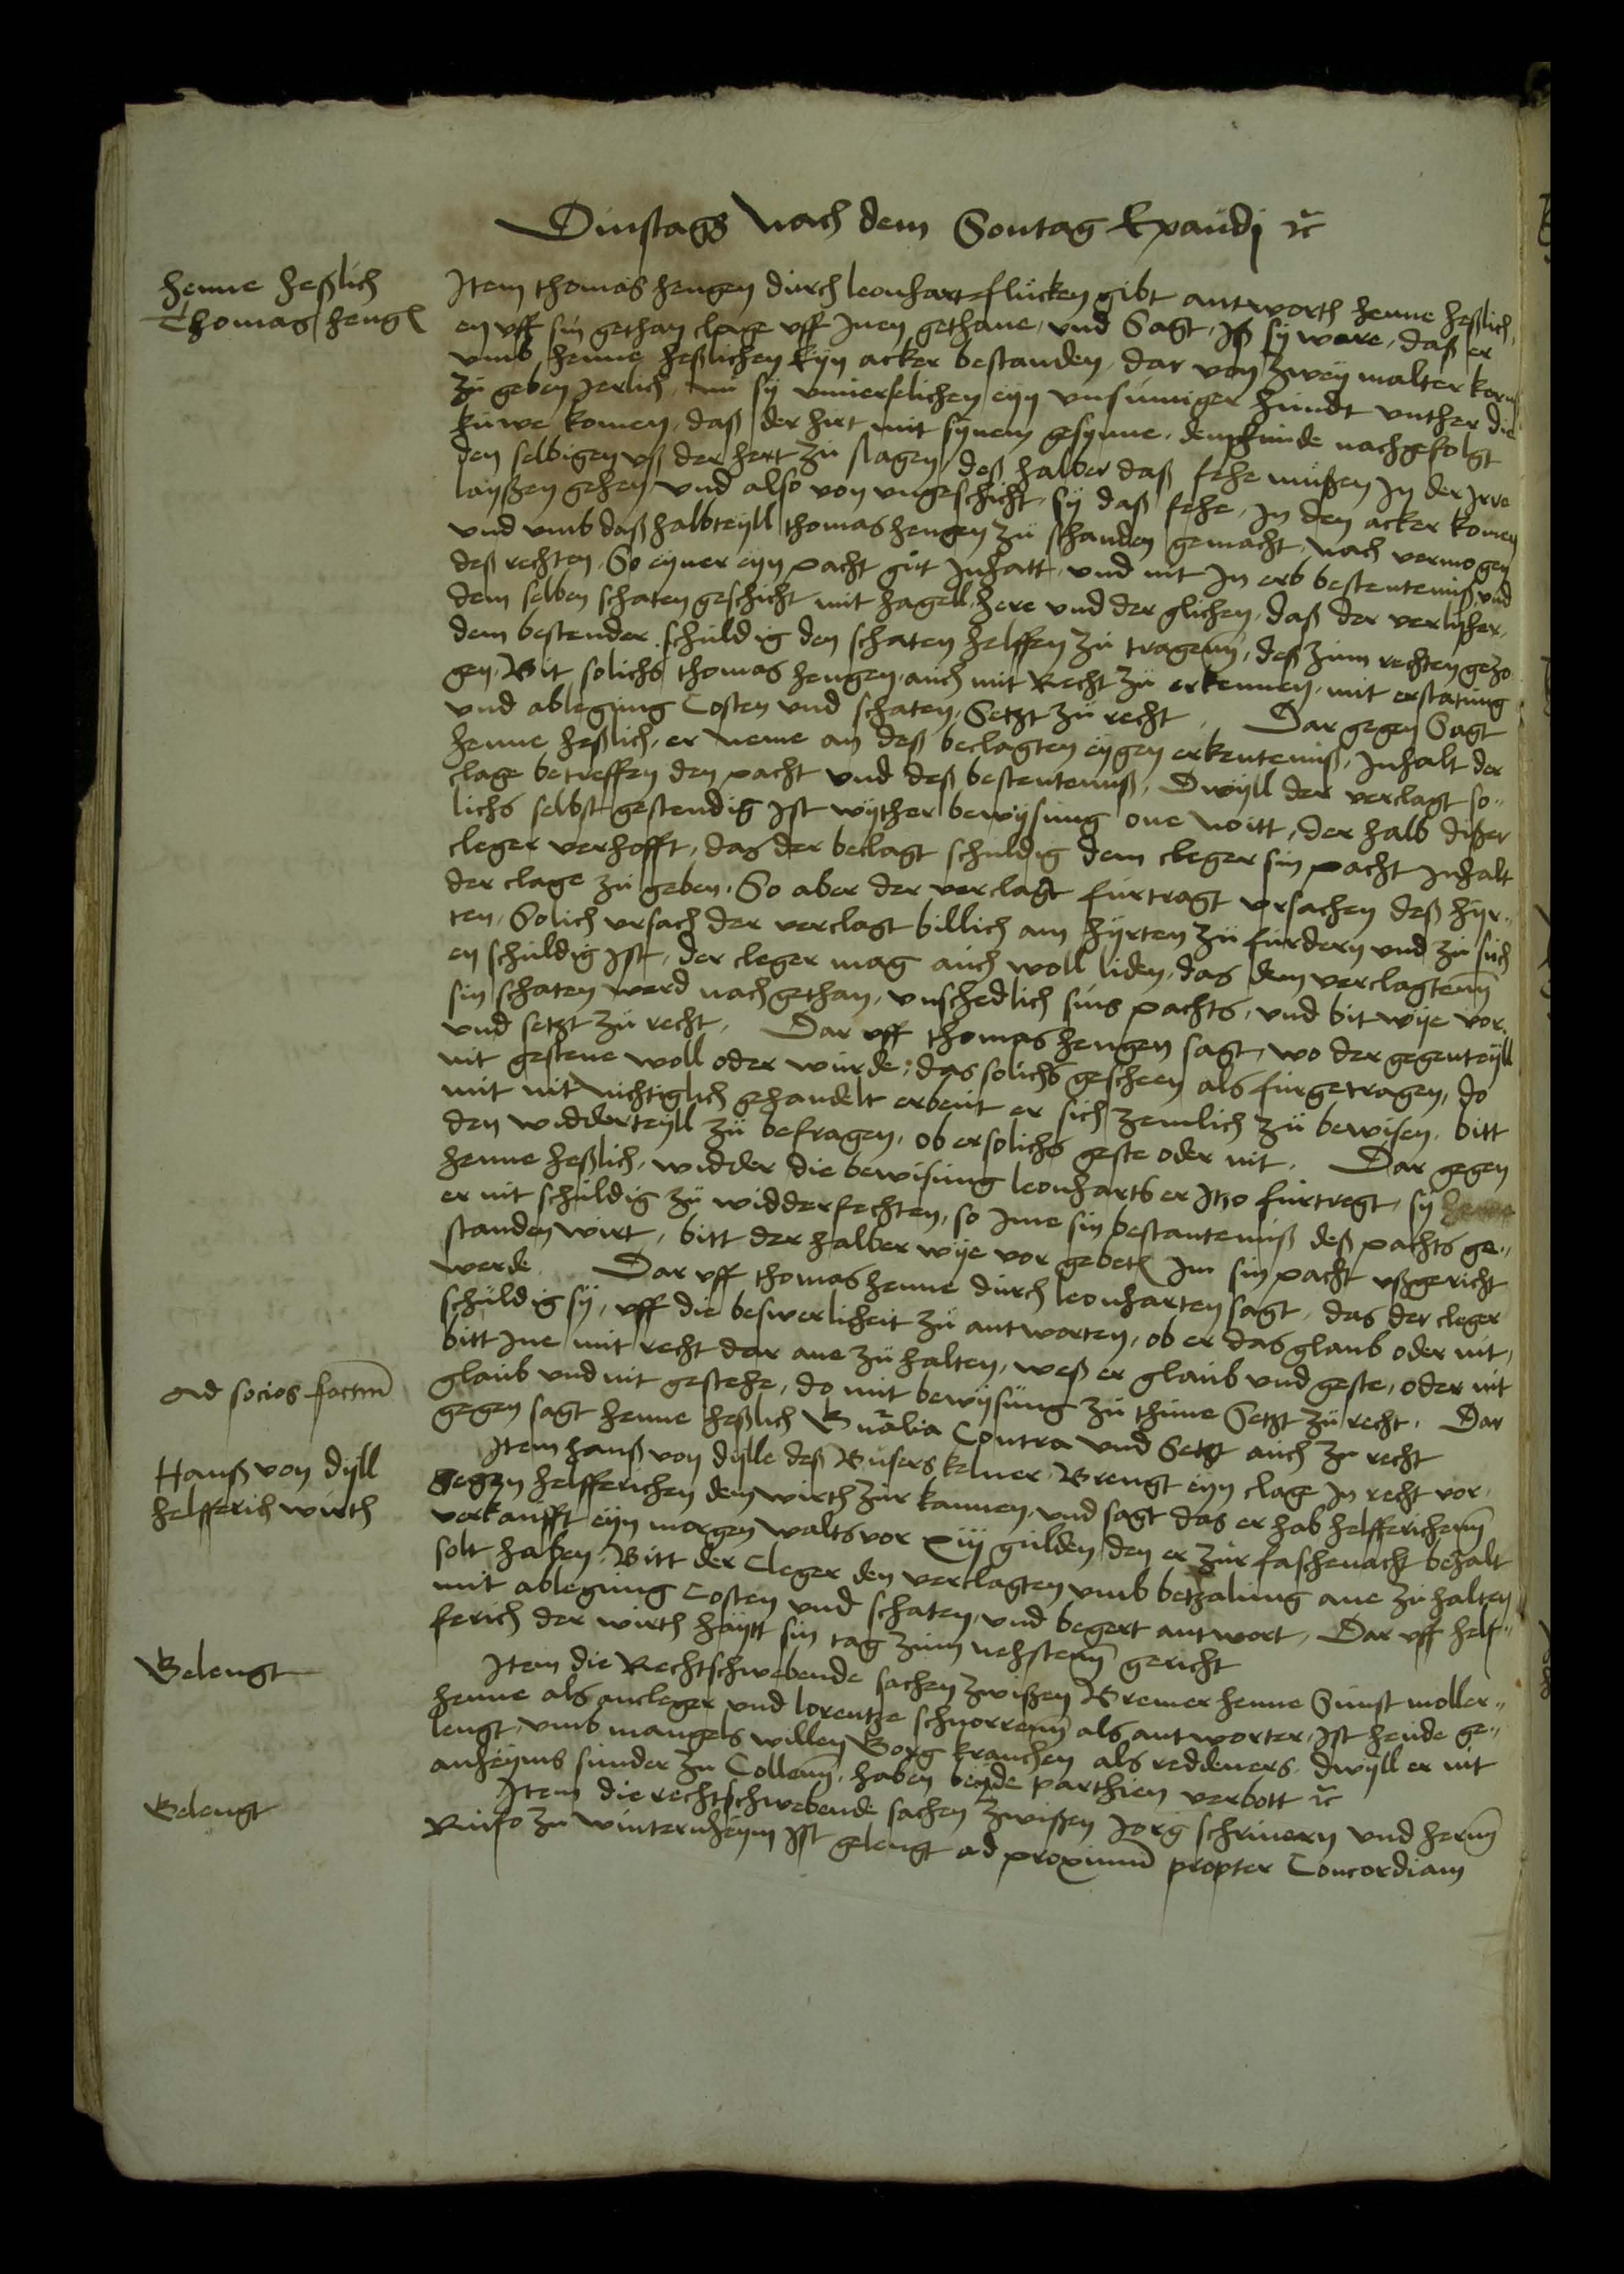 Dinstags Nach dem Sontag Exaudj etc
Henne Heßlich
Thomas Heng
Item thomas hengen durch leonhart flucken gibt antworth henne heßlich
en uff sin gethan clage uff Inen gethane, und Sagt, Iß sy ware, daß er
umb henne heßlichen Eyn acker bestanden, dar von zwey malter korn
zu geben Jerlich, nu sy unuerselichen eyn unsinniger hundt unther die
kuwe komen, daß der hirt mit synem gesynne, dem hunde nachgefolgt
den selbigen uß der hert zu slagen, deß halber daß fehe mußen In der Irre
layßen gehen und also von ungeschicht, sy daß fehe, In den acker komen
und umb daß halbteyll thomas hengen zu schanden gemacht, nach vermogen
deß rechten, So eyner eyn pacht gut Inhatt, und nit In erb bestentenuß, und
dem selben schaten geschicht mit hagell, here und der glichen, daß der verlyher
dem bestender schuldig den schaten helffen zu tragenn, deß zum rechten gezo
gen, Bit solichs thomas hengen auch mit Recht zu erkennen, mit erstatung
und ablegung Costen und schaten, Setzt zu recht. Dar gegen Sagt
henne heßlich, er neme an deß beclagten eygen erkentenuß, Inhalt der
clage betreffen den pacht und deß bestentenuß, Dwyll der verclagt so„
lichs selbst gestendig Ist wyther bewysung one noitt, der halb dißer
cleger verhofft, das der beclagt schuldig dem cleger sin pacht Inhalt
der clage zu geben. So aber der verclagt furtragt ursachen deß hyr„
ten, Solich ursach der verclagt billich am hyrten zu furdern und zu such
en schuldig Ist, der cleger mag auch woll liden, das dem verclagtenn
sin schaten werd nach gethan, unschedlich sins pachts, und bit wye vor
und setzt zu recht, Dar uff thomas hengen sagt, wo der gegenteyll
nit gestene woll oder wurde, das solichs gescheen als furgetragen, do
mit nit nichtiglich gehandelt erbeut er sich zemlich zu bewisen, bitt
den widderteyll zu befragen, ob er solichs geste oder nit. Dar gegen
henne heßlich, widder die bewisung leonharts er Itzo furtregt, sy
er nit schuldig zu widderfechten, so Ime sin bestantenuß deß pachts ge„
standen wirt, bitt der halber wye vor gebet Im sin pacht ußgericht
werde. Dar uff thomas henne durch leonharten sagt, das der cleger
schuldig sy, uff die beswerlicheit zu antworten, ob er das glaub oder nit,
bitt Ine mit recht dar ane zu halten, weß er glaub und geste, oder nit
glaub und nit gestehe, do mit bewysung zu thune Setzt zu recht. Dar
gegen sagt henne heßlich Gnalia Contra und Setzt auch zu recht
ad socios factum
Hanß von dyll
helfferich wirth
Item hanß von dylle deß Busers kelner, Brengt eyn clage In recht vor
gegen helfferichen dem wirth zur kannen, und sagt das er hab helfferichenn
verkaufft eyn morgen walts vor xiij gulden, den er zur faschenacht bezalt
solt haben, Bitt der Cleger den verclagten umb betzalung ane zu halten
mit ablegung Costen und schaten, und begert antwort, Dar uff helf„
ferich der wirth haytt sin tag zum nehstenn gericht
Gelengt
Item die Rechtschwebende sachen zwißen Bremer henne Sunst moller„
henne als ancleger und lorentze schnorrenn als antworter, Ist heude ge„
lengt, umb mangels willen Gorg krauchen als reddeners, dwyll er nit
anheyms sunder zu Collenn, haben beyde parthien verbott etc
Gelengt
Item die rechtschwebende sachen zwißen Jorg schrinern und herm
Rufo zu winternheym Ist gelengt ad proximum propter Concordiam